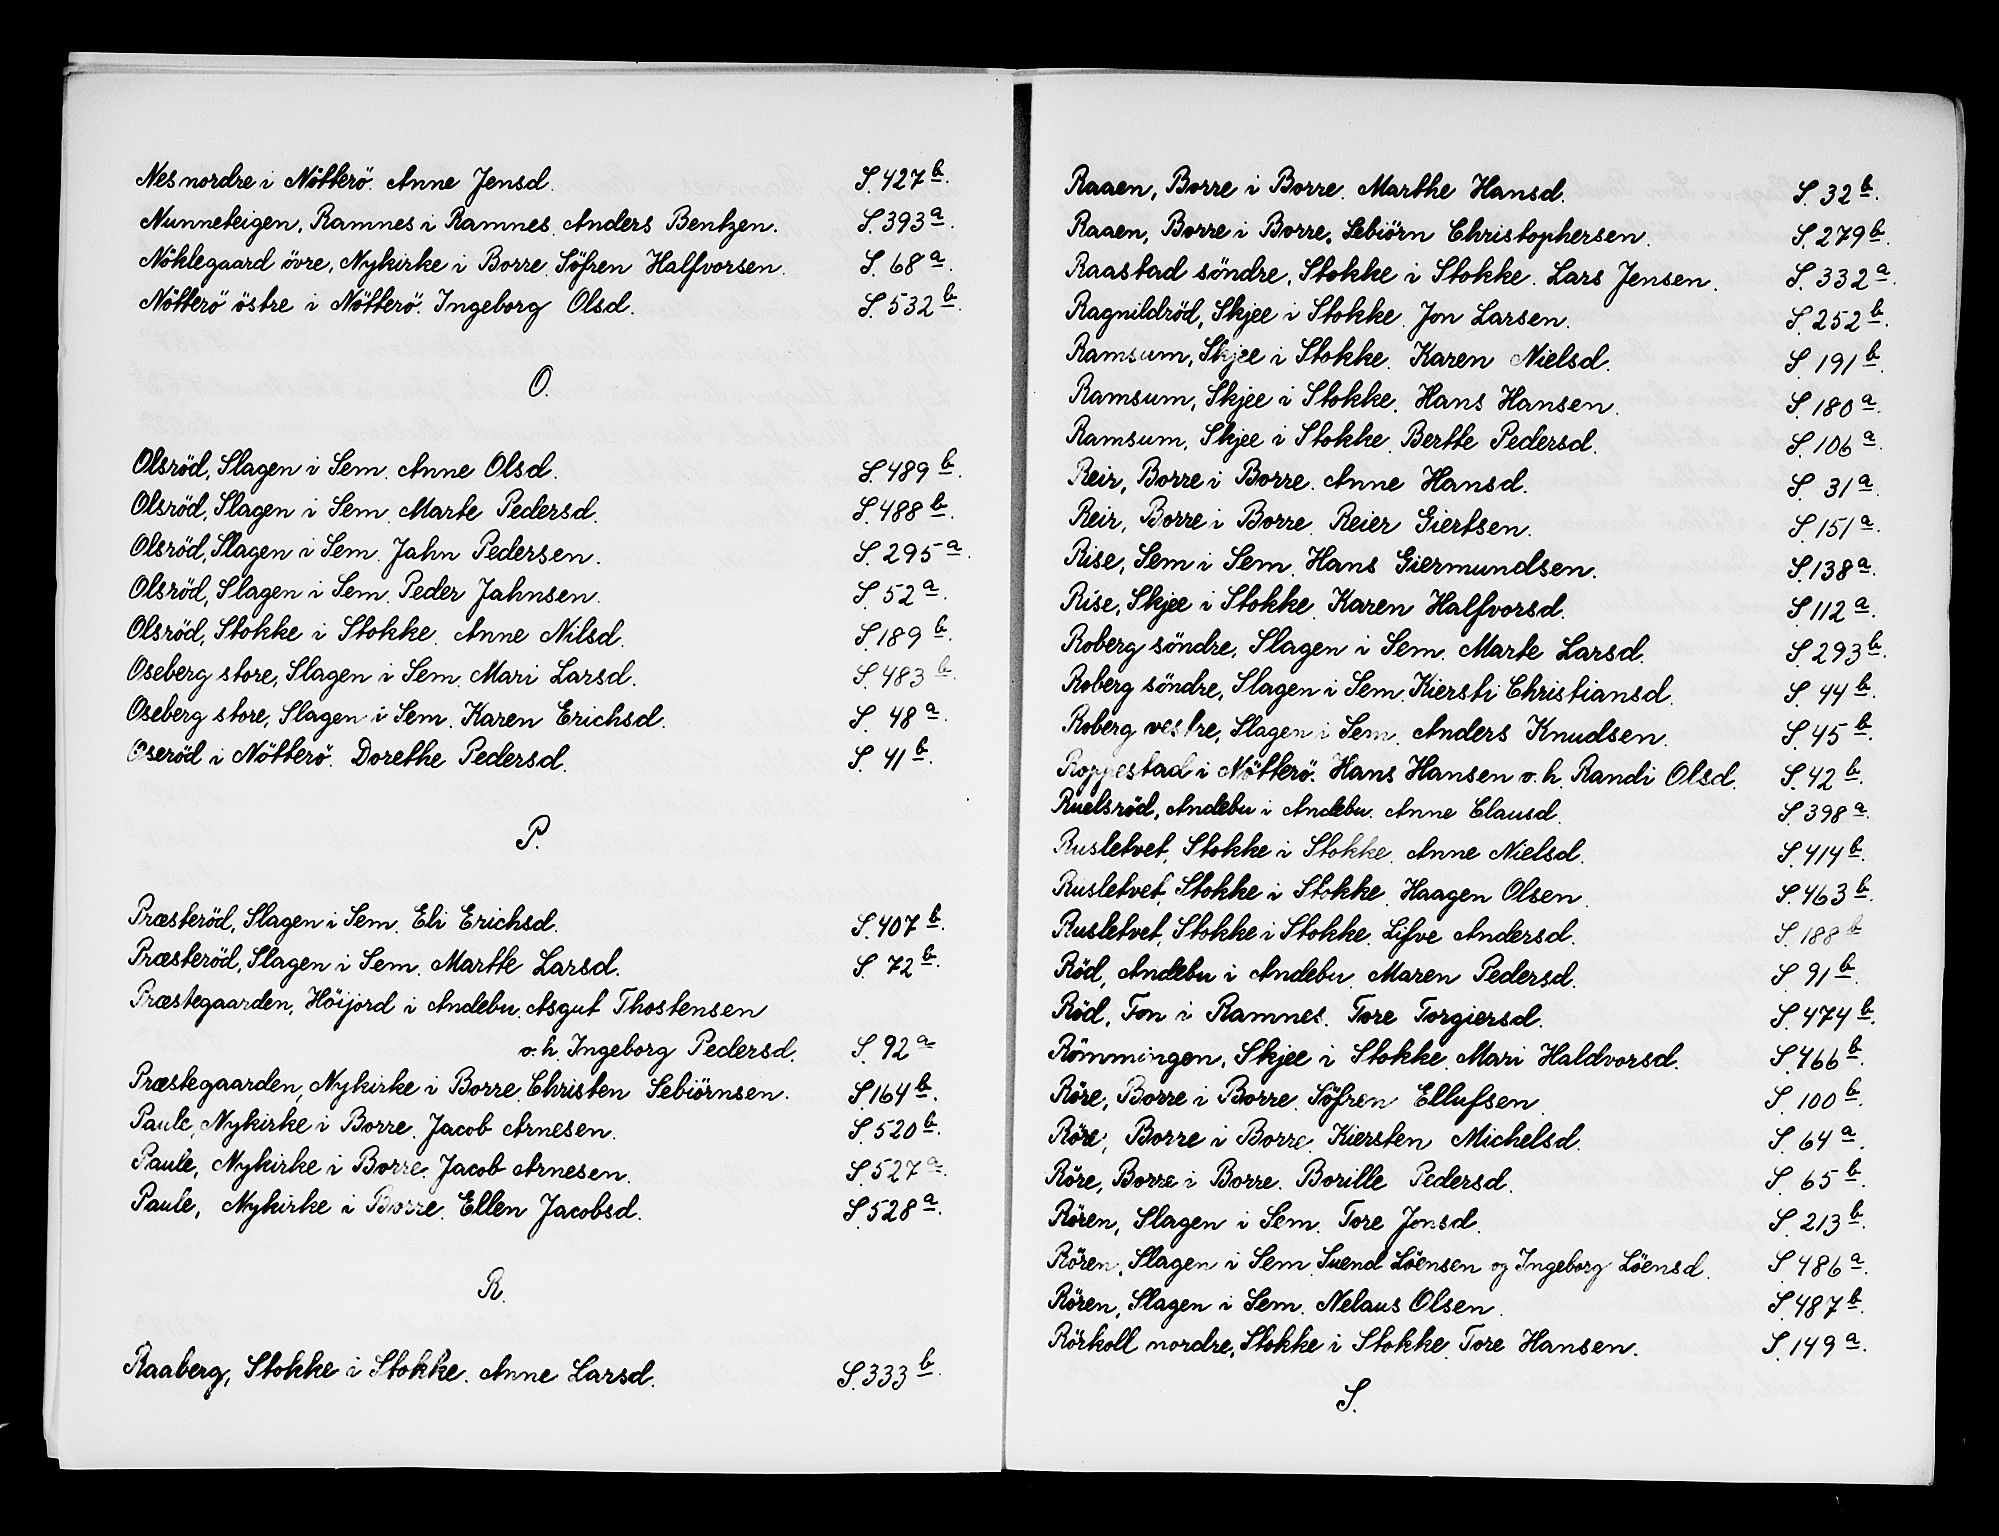 Nes nordre i Nötterö. Anne Jensd. S. 427 b.
Nunneteigen, Ramnes i Ramnes. Anders Bentzen. S. 393 a.
Nöklegaard övre, Nykirke i Borre. Söfren Halfvorsen. S. 68 a.
Nötterö östre i Nötterö. Ingeborg Olsd. S. 532 b.
O.
Olsröd, Slagen i Sem. Anne Olsd. S. 489 b.
Olsröd, Slagen i Sem. Marte Pedersd. S. 488 b.
Olsröd, Slagen i Sem. Jahn Pedersen. S. 295 a.
Olsröd, Slagen i Sem. Peder Jahnsen. S. 52 a.
Olsröd, Stokke i Stokke. Anne Nilsd. S. 189 b.
Oseberg store, Slagen i Sem. Mari Larsd. S. 483 b.
Oseberg store, Slagen i Sem. Karen Erichsd. S. 48 a.
Oseröd i Nötterö. Dorethe Pedersd. S. 41 b.
P.
Præsteröd, Slagen i Sem. Eli Erichsd. S. 407 b.
Præsteröd, Slagen i Sem. Marthe Larsd. S. 72 b.
Præstegaarden, Höijord i Andebu. Asgut Thostensen
o.h. Ingeborg Pedersd. S. 92 a.
Præstegaarden, Nykirke i Borre. Christen Sebiörnsen. S. 164 b.
Paule, Nykirke i Borre. Jacob Arnesen. S. 520 b.
Paule, Nykirke i Borre. Jacob Arnesen. S. 527 a.
Paule, Nykirke i Borre. Ellen Jacobsd. S. 528 a.
R.
Raaberg, Stokke i Stokke. Anne Larsd. S. 333 b.
Raaen, Borre i Borre. Marthe Hansd. S. 32 b.
Raaen, Borre i Borre. Sebiörn Christophersen. S. 279 b.
Raastad söndre, Stokke i Stokke. Lars Jensen. S. 332 a.
Ragnildröd, Skjee i Stokke. Jon Larsen. S. 252 b.
Ramsum, Skjee i Stokke. Karen Nielsd. S. 191 b.
Ramsum, Skjee i Stokke. Hans Hansen. S. 180 a.
Ramsum, Skjee i Stokke. Berthe Pedersd. S. 106 a.
Reir, Borre i Borre. Anne Hansd. S. 31 a.
Reir, Borre i Borre. Reier Giertsen. S. 151 a.
Rise, Sem i Sem. Hans Giermundsen. S. 138 a.
Rise, Skjee i Stokke. Karen Halfvorsd. S. 112 a.
Roberg söndre, Slagen i Sem. Marte Larsd. S. 293 b.
Roberg söndre, Slagen i Sem. Kiersti Christiansd. S. 44 b.
Roberg vestre, Slagen i Sem. Anders Knudsen. S. 45 b.
Roppestad i Nötterö. Hans Hansen o.h. Randi Olsd. S. 42 b.
Ruelsröd, Andebu i Andebu. Anne Clausd. S. 398 a.
Rusletvet, Stokke i Stokke. Anne Nielsd. S. 414 b.
Rusletvet, Stokke i Stokke. Haagen Olsen. S. 463 b.
Rusletvet, Stokke i Stokke. Lifve Andersd. S. 188 b.
Röd, Andebu i Andebu. Maren Pedersd. S. 91 b.
Röd, Fon i Ramnes. Tore Torgiersd. S. 474 b.
Römmingen, Skjee i Stokke. Mari Haldvorsd. S. 466 b.
Röre, Borre i Borre. Söfren Ellufsen. S. 100 b.
Röre, Borre i Borre. Kiersten Michelsd. S. 64 a.
Röre, Borre i Borre. Borille Pedersd. S. 65 b.
Rören, Slagen i Sem. Tore Jonsd. S. 213 b.
Rören, Slagen i Sem. Suend Löensen og Ingeborg Löensd. S. 486 a.
Rören, Slagen i Sem. Nelaus Olsen. S. 487 b.
Rörkoll nordre, Stokke i Stokke. Tore Hansen. S. 149 a.
S.